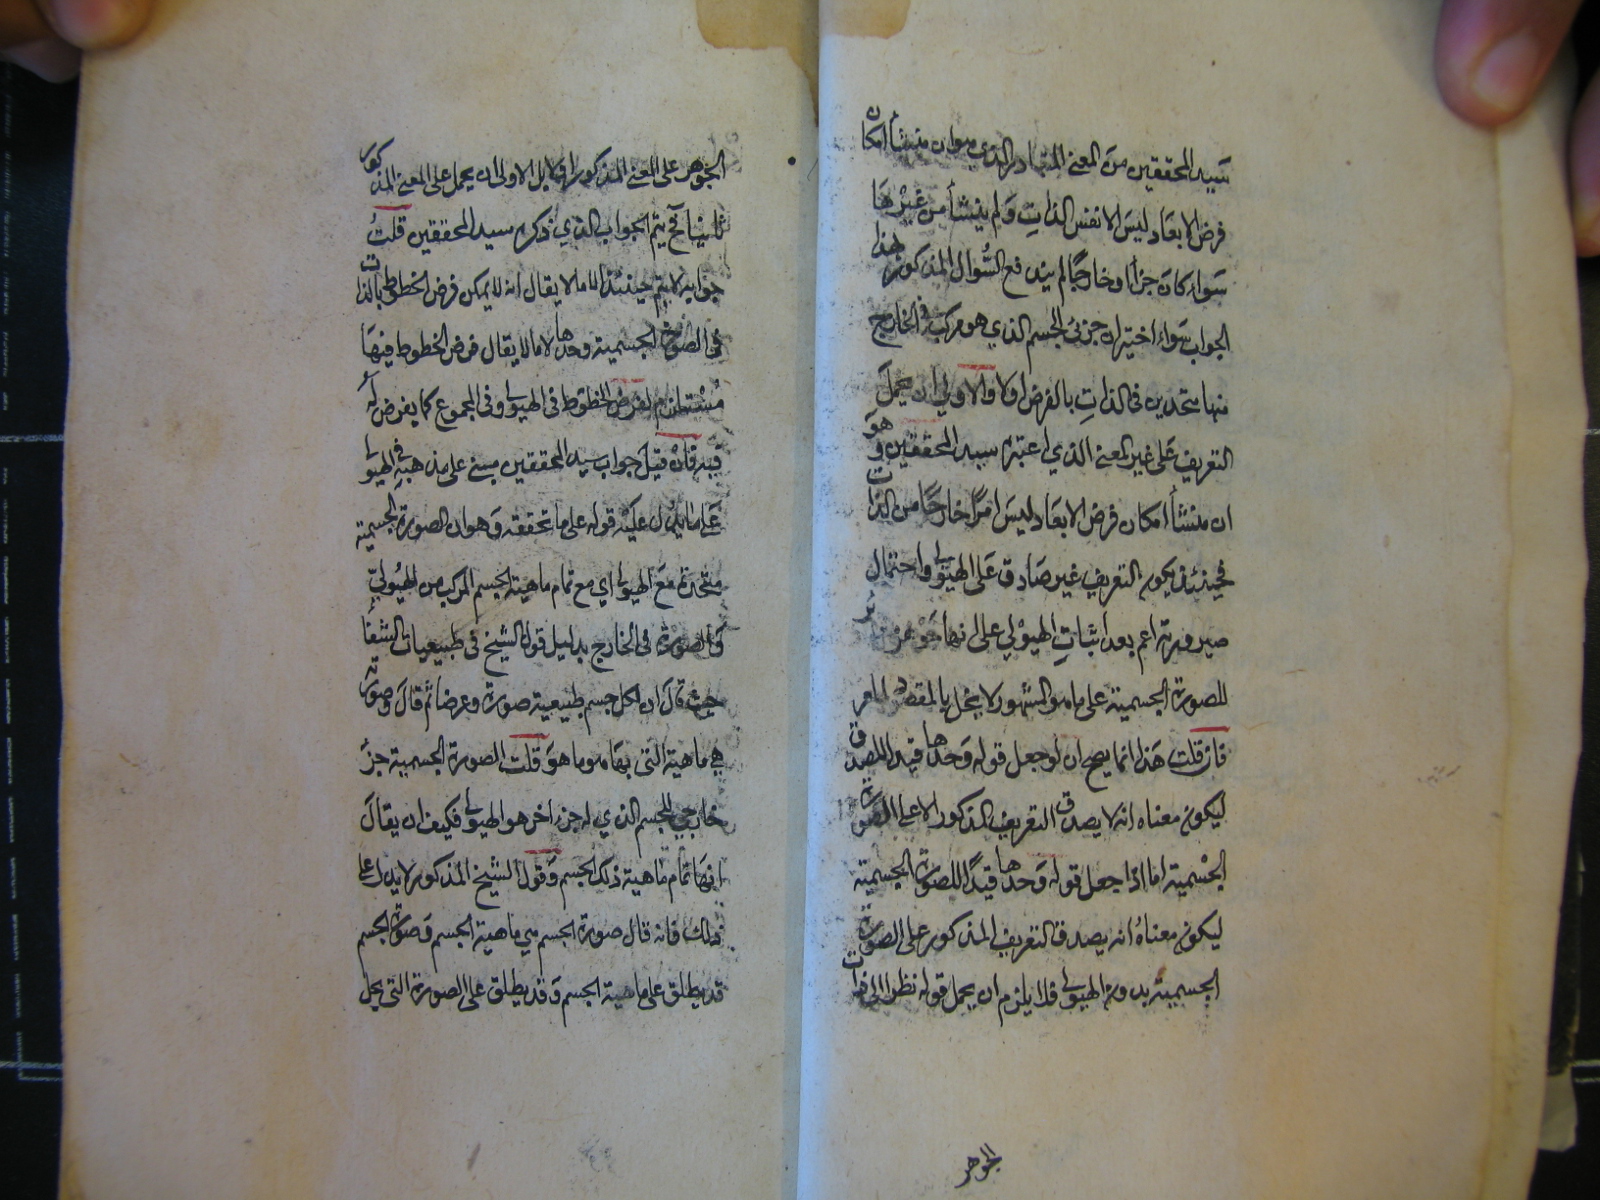 سيد المحققين من المعنى المتبادر الذي هو ان منشأ امكان
فرض الابعاد ليس الا نفس الذات ولم ينشأ من غيرها
سواء كان جزأ او خارجا لم يندفع السؤال المذكور هذا
الجواب سواء اختير ان جزئي الجسم الذي هو مركب في الخارج
منها متحدين في الذات بالفرض اولا والاولى ان يحمل
التعريف على غير المعنى الذي اعتبره سيد المحققين وهو
ان منشأ امكان فرض الابعاد ليس امرا خارجا من الذات
فحينئذ يكون التعريف غير صادق على الهيولى واحتمال
صيرورته اعم بعد اثبات الهيولى على انها جوهر
للصورة الجسمية على ما هو المشهور لا يخل بالمقصود
فان قلت هذا انما يصح ان لو جعل قوله وحدها قيد الصدق
ليكون معناه انه لا يصدق التعريف المذكور الا على الصورة
الجسمية اما اذا جعل قوله وحدها قيدا للصورة الجسمية
ليكون معناه انه يصدق التعريف المذكور على الصورة
الجسمية بدون الهيولى فلا يلزم ان يحمل قوله نظرا الى ذات
الجوهر
الجوهر على المعنى المذكور اولا بل الاولى ان يحمل على المعنى المذكور
ثانيا فح يتم الجواب الذي ذكره سيد المحققين قلت
جوابه لا يتم حينئذ لانا لا يقال انه لا يمكن فرض الخطوط بالذات
في الصورة الجسمية وحدها لانا لا يقال فرض الخطوط فيها
مستلزم لفرض الخطوط في الهيولى وفي المجموع كما يفرض له
فيه فان قيل جواب سيد المحققين مبني على مذهبه في الهيولى
على ما يدل عليه قوله على ما تحققه وهو ان الصورة الجسمية
متحدة مع الهيولى اي مع تمام ماهية الجسم المركب من الهيولى
والصورة في الخارج بدليل قول الشيخ في طبيعيات الشفا
حيث قال ان لكل جسم طبيعية صورة وعرضا ثم قال وصورته
هي ماهية التي بها هو ما هو قلت الصورة الجسمية جزء
خارجي للجسم الذي له جزء اخر هو الهيولى فكيف ان يقال
انها تمام ماهية ذلك الجسم وقول الشيخ المذكور لا يدل على
ذلك فانه قال صورة الجسم هي ماهية الجسم وصورة الجسم
قد يطلق على ماهية الجسم وقد يطلق على الصورة التي يحل